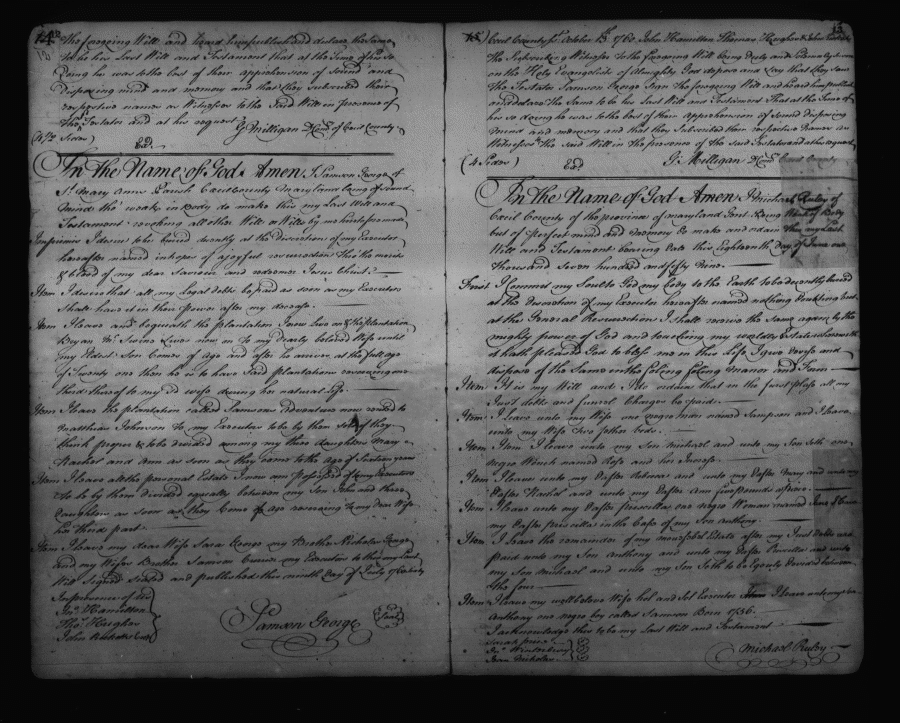 14
the foregoing Will and heard him publish and declare the Same
to be his Last Will and Testament that at the Time of his So
doing he was to the best of their apprehension of Sound and
disposing mind and memory and that they Subscribed their
respective names as Witnesses to the Said Will in presence of
the Testator and at his request
G Milligan Com of Cecil County
(4 1/2 Sides)
Exd
In the Name of God Amen I Samson George of
St Mary Anns Parish Cecil County Maryland being of Sound
Mind tho' weak in Body do make this my Last Will and
Testament revoking all other Will or Wills by me heretofore made
Imprimis I desire to be buried decently at the discretion of my Executor
hereafter named in hopes of a joyfull resurrection thro' the merits
& blood of my dear Saviour and redeemer Jesus Christ
Item I desire that all my Legal debts be paid as soon as my Executors
Shall have it in their power after my decease
Item I leave and bequeath the plantation I now live on & the plantation
Bryan Mc Swine Lives now on to my dearly beloved Wife until
my Eldest Son Comes of age and after he arrives at the full age
of Twenty one then he is to have Said plantations reserving one
third thereof to my Sd wife during her natural Life
Item I leave the plantation called Samsons now rented to
Matthias Johnson to my Executors to be by them Sold if they
think proper & to be divided among my three daughters Mary
Rachel and Ann as soon as they come to the age of Sixteen years
Item I leave all the personal Estate I now am possessed of to my Executors
to be by them divided equally between my Son John and three
daughters as soon as they Come of age reserving to my dear Wife
her thirds part
Item I leave my dear Wife Sara George my Brother Nicholas George
and my Wifes Brother my Executors to this my Last
Will Signed Sealed and published this ninth Day of July
In presence of us
Jno Hamilton
Thos Hughes
John Ricketts
Samson George
Seal
Cecil County Sct October 13th 1760 John Hamilton Thomas Hughes & John
The Subscribing Witnesses to the foregoing Will being Duly and Solemnly Sworn
on the Holy Evangelists of Almighty God depose and Say that they Saw
the Testator Samson George Sign the foregoing Will and heard him publish
and declare the Same to be his Last Will and Testament That at the Time of
his so doing he was to the best of their apprehension of Sound disposing
mind and memory and that they Subscribed their respective Names as
Witnesses to the Said Will in the presence of the Said Testator and at his request
(4 Sides)
G. Milligan Com Cecil County
Exd
In the Name of God Amen I Michael Ruley of
Cecil County of the province of Maryland being Weak of Body
but of perfect mind and memory do make and ordain this my Last
Will and Testament bearing Date this Eighteenth day of June one
thousand Seven hundred and fifty Nine
First I Commit my Soul to God my body to the Earth to be decently buried
at the discretion of my Executor hereafter named nothing doubting but
at the General Resurrection I shall receive the Same again by the
mighty power of God and touching my worldly Estate wherewith
it hath pleased God to bless me in this Life I give devise and
dispose of the Same in the following manner and Form
Item It is my Will and I do ordain that in the first place all my
Just debts and funeral Charges be paid
Item I leave unto my Wife one negro man named Sampson and I leave
unto my Wife two feather beds
Item Item I leave unto my Son Michael and unto my Son Seth one
Negro Wench named and her Increase
Item I leave unto my Dafter Rebecca and unto my Dafter Mary and unto my
Dafter Rachel and unto my Dafter Ann five Pounds apiece
Item I leave unto my Dafter Priscilla one negro Woman named
my Dafter Priscilla in the Care of my Son Anthony
Item I leave the remainder of my moveable Estate after my Just debts are
paid unto my Son Anthony and unto my Dafter Priscilla and unto
my Son Michael and unto my Son Seth to be Equaly Devided between
the four
Item I leave my well beloved Wife Sol Executor I leave unto my Son
Anthony one negro boy called Samson Born 1756
I acknowledge this to be my Last Will and Testament
Sarah
Jno Winterberry
Michael Ruley